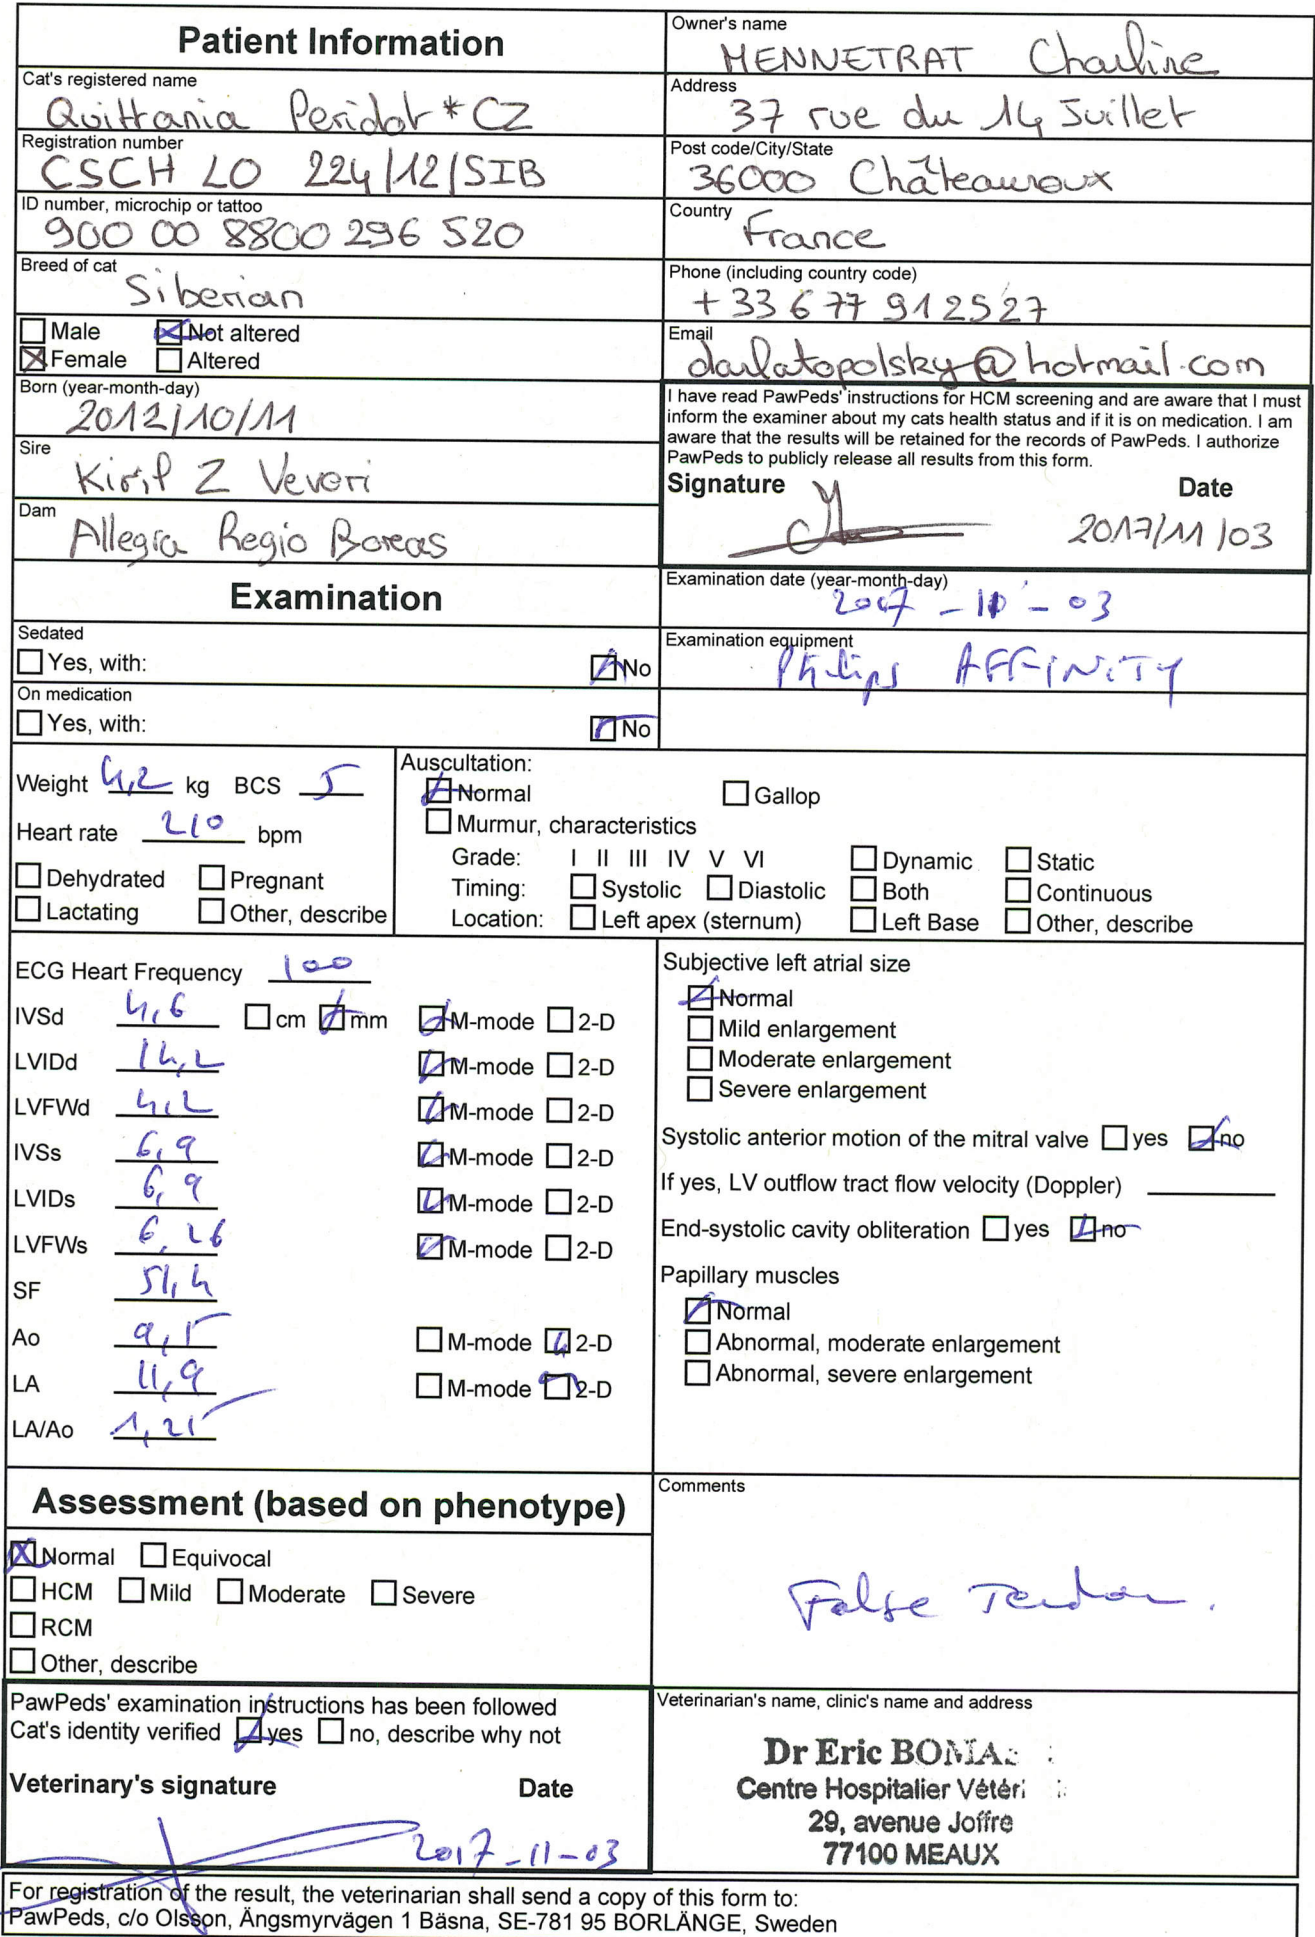 Patient Information
Owner's name
MENNETRAT Charline
Cat's registered name
Quittania Peridot*CZ
Address
37 rue du 14 Juillet
Registration number
CSCH LO 224/12/SIB
Post code/City/State
36000 Châteauroux
ID number, microchip or tattoo
900 00 8800 296 520
Country
France
Breed of cat
Siberian
Phone (including country code)
+33 6 77 91 25 27
Male Not altered
Female Altered
Email
darlatopolsky@hotmail.com
Born (year-month-day)
2012/10/11
I have read PawPeds' instructions for HCM screening and are aware that I must
inform the examiner about my cats health status and if it is on medication. I am
aware that the results will be retained for the records of PawPeds. I authorize
PawPeds to publicly release all results from this form.
Sire
Kiril Z Vevori
Signature Date
2017/11/03
Dam
Allegra Regio Boreas
Examination
Examination date (year-month-day)
2017-11-03
Sedated
Yes, with: No
Examination equipment
Philips AFFINITY
On medication
Yes, with: No
Weight 4,2 kg BCS 5
Heart rate 210 bpm
Dehydrated Pregnant
Lactating Other, describe
Auscultation:
Normal Gallop
Murmur, characteristics
Grade: I II III IV V VI Dynamic Static
Timing: Systolic Diastolic Both Continuous
Location: Left apex (sternum) Left Base Other, describe
ECG Heart Frequency 100
IVSd 4,6 cm mm M-mode 2-D
LVIDd 14,2 M-mode 2-D
LVFWd 4,2 M-mode 2-D
IVSs 6,9 M-mode 2-D
LVIDs 6,9 M-mode 2-D
LVFWs 6,26 M-mode 2-D
SF 51,4
Ao 9,5 M-mode 2-D
LA 11,9 M-mode 2-D
LA/Ao 1,25
Subjective left atrial size
Normal
Mild enlargement
Moderate enlargement
Severe enlargement
Systolic anterior motion of the mitral valve yes no
If yes, LV outflow tract flow velocity (Doppler)
End-systolic cavity obliteration yes no
Papillary muscles
Normal
Abnormal, moderate enlargement
Abnormal, severe enlargement
Assessment (based on phenotype)
Normal Equivocal
HCM Mild Moderate Severe
RCM
Other, describe
Comments
False Tendon.
PawPeds' examination instructions has been followed
Cat's identity verified yes no, describe why not
Veterinary's signature Date
2017-11-03
Veterinarian's name, clinic's name and address
Dr Eric
Centre Hospitalier
29, avenue Joffre
77100 MEAUX
For registration of the result, the veterinarian shall send a copy of this form to:
PawPeds, c/o Olsson, Ängsmyrvägen 1 Bäsna, SE-781 95 BORLÄNGE, Sweden